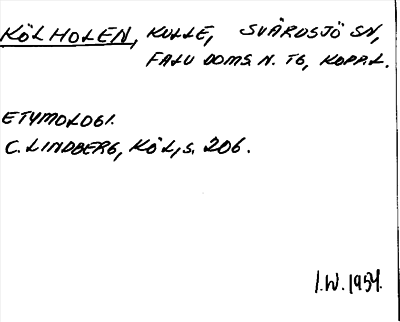 KÖLHOLEN, KULLE, SVÄRDSJÖ SN,
FALU DOMS. N. TG, KOPP.L.
ETYMOLOGI.
C. LINDBERG, KÖL, S. 206.
I.W. 1954.